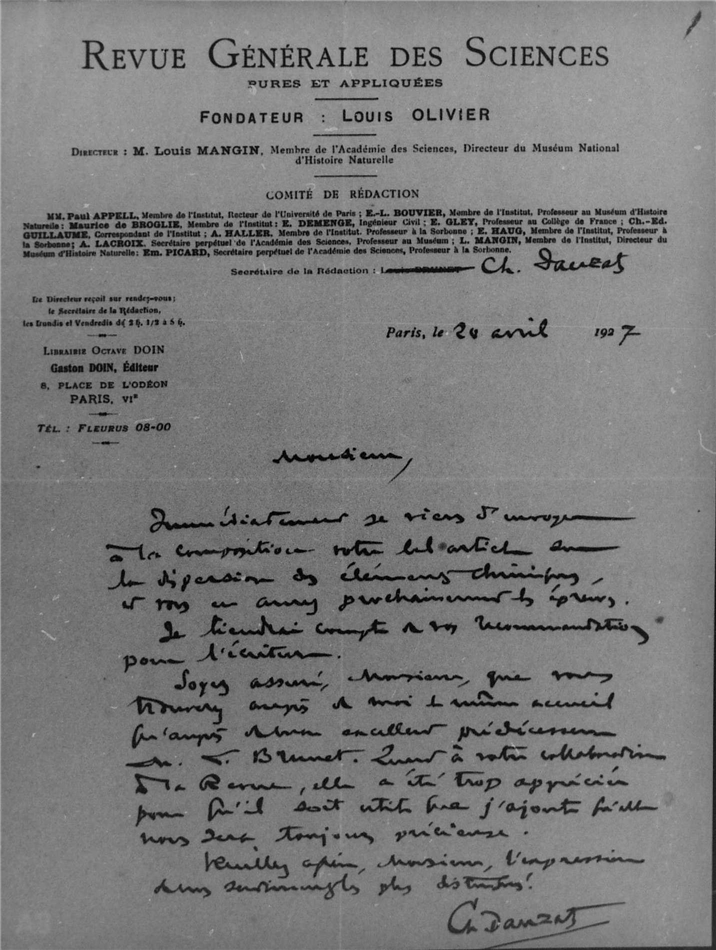 REVUE GÉNÉRALE DES SCIENCES
PURES ET APPLIQUÉES
FONDATEUR : LOUIS OLIVIER
DIRECTEUR : M. Louis MANGIN, Membre de l'Académie des Sciences, Directeur du Muséum National
d'Histoire Naturelle
COMITÉ DE RÉDACTION
MM. Paul APPELL, Membre de l'Institut, Recteur de l'Université de Paris ; E.-L. BOUVIER, Membre de l'Institut, Professeur au Muséum d'Histoire
Naturelle : Maurice de BROGLIE, Membre de l'Institut : E. DEMENGE, Ingénieur Civil ; E. GLEY, Professeur au Collège de France ; Ch.-Ed.
GUILLAUME, Correspondant de l'Institut ; A. HALLER, Membre de l'Institut, Professeur à la Sorbonne ; E. HAUG, Membre de l'Institut, Professeur à
la Sorbonne ; A. LACROIX, Secrétaire perpétuel de l'Académie des Sciences, Professeur au Muséum ; L. MANGIN, Membre de l'Institut, Directeur du
Muséum d'Histoire Naturelle : Em. PICARD, Secrétaire perpétuel de l'Académie des Sciences, Professeur à la Sorbonne.
Secrétaire de la Rédaction : Louis BRUNET Ch. Dauzats
Le Directeur reçoit sur rendez-vous ;
le Secrétaire de la Rédaction,
les Lundis et Vendredis de 2 h. 1/2 à 5 h.
Paris, le 20 avril 1927
LIBRAIRIE OCTAVE DOIN
Gaston DOIN, Éditeur
8, PLACE DE L'ODÉON
PARIS, VIe
TÉL. : FLEURUS 08-00
Monsieur,
Immédiatement je viens d'envoyer
à la composition votre bel article sur
la dispersion des éléments chimiques,
et vous en aurez prochainement les épreuves.
Je tiendrai compte de vos recommandations
pour l'écriture.
Soyez assuré, Monsieur, que vous
trouverez auprès de moi le même accueil
qu'auprès de mon excellent prédécesseur
M. L. Brunet. Quant à votre collaboration
à la Revue, elle a été trop appréciée
pour qu'il soit utile que j'ajoute qu'elle
nous sera toujours précieuse.
Veuillez agréer, Monsieur, l'expression
de mes sentiments les plus distingués.
Ch Dauzats